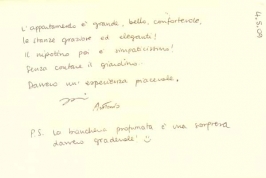 L'appartamento è grande, bello, confortevole,
le stanze graziose ed eleganti!
Il nipotino poi è simpaticissimo!
Senza contare il giardino.
Davvero un'esperienza piacevole.
Antonio
P.S. La biancheria profumata è una sorpresa
davvero gradevole!
4.5.09